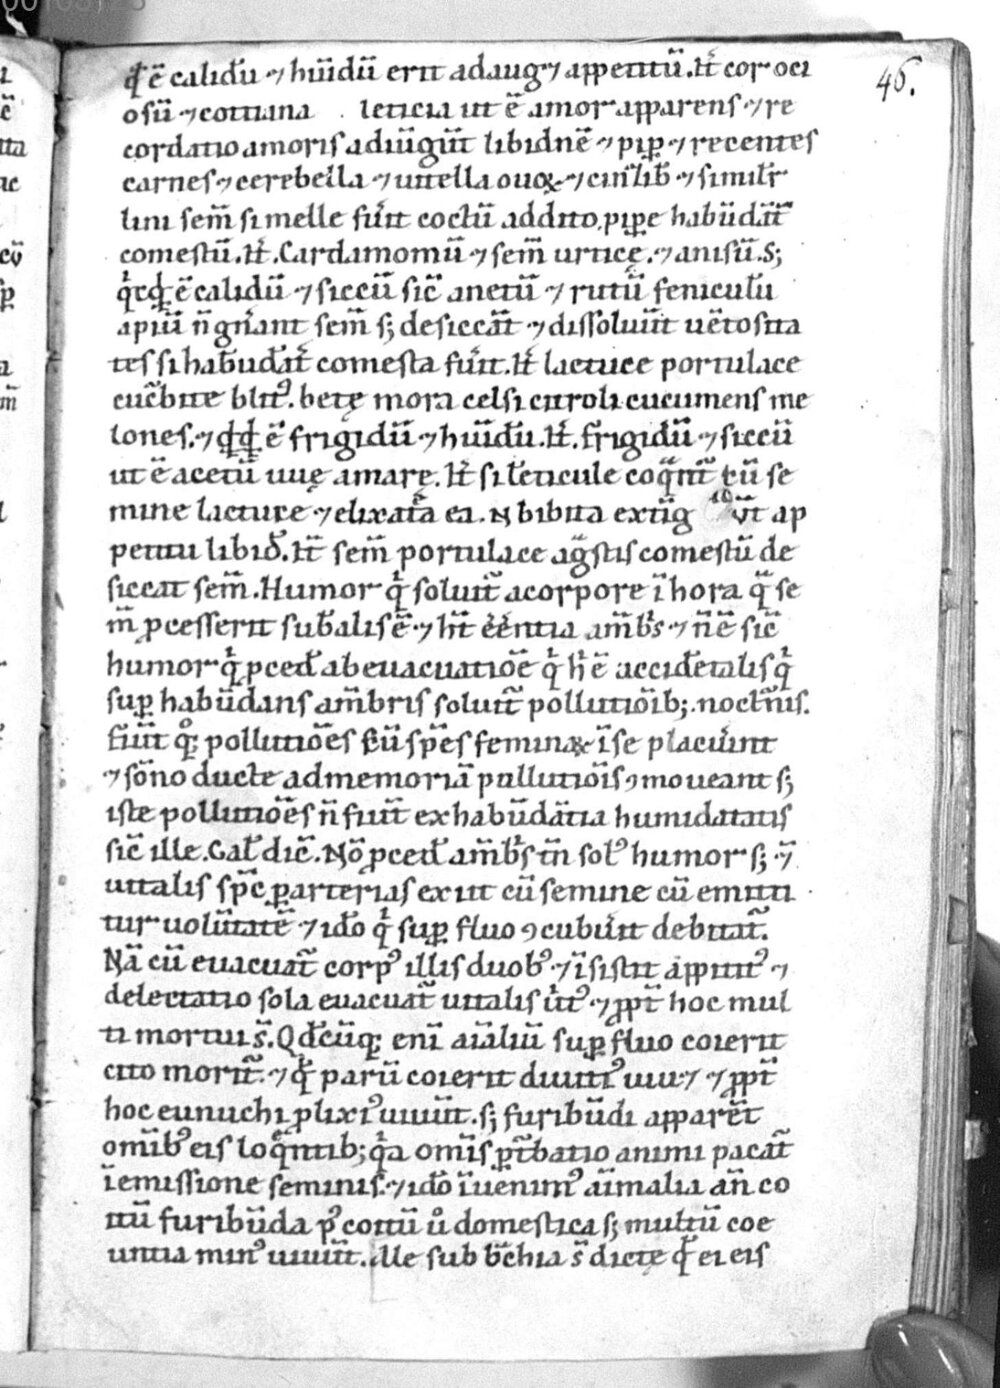 46.
qđ ē calidū ⁊ hūidū erit adaug& appetitū. It̄ cor oci
osū ⁊ cottiana . leticia ut ē amor apparens ⁊ re
cordatio amoris adiūgūt libidnē ⁊ pip̄ ⁊ recentes
carnes ⁊ cerebella ⁊ uitella ouoꝝ ⁊ ⁊ simil̄r
lini sem̄ si melle fūit coctū addito pipe habūdāt̄
comestū. It̄. Cardamomū ⁊ sem̄ urticę. ⁊ anisū. S;
qͥcqd ē calidū ⁊ siccū sic̄ anetū ⁊ rutū feniculū
apiū n̄ gn̄ant sem̄ s; desiccāt ⁊ dissoluūt uētosita
tes si habūdāt̄ comesta fūīt. It̄ lactuce portulace
cuc̄bite blitꝰ. betę mora celsi citroli cucumens me
lones. ⁊ qdqd ē frigidū ⁊ hūidū. It̄. frigidū ⁊ siccū
ut ē acetū uuę amarę. It̄ si lēticule coqͣnt̄ cū se
mine lactuce ⁊ elixat̄a ea. N bibita extīg ūt ap
petitū libid̄. It̄ sem̄ portulace aḡstis comestū de
siccat sem̄. Humor qͥ soluit̄ a corpore ī hora qͣ se
m̄ ꝓcesserit sub̄alis ē ⁊ hīt ēēntia āmb̄s ⁊ n̄ē sic̄
humor qͥ pced̄ ab euacuatiōe qͥ hͥ ē accidētalis qͥ
suꝑ habūdans āmbris soluit̄ pollutiōib; noctn̄is.
fiūt qͦ; pollutiōes cū sp̄es feminaꝝ ī se placūint
⁊ sōno ducte ad memoriā pullutiōis ꝯmoueant s;
iste pollutiōes n̄ fiūt ex habūdātia humiditatis
sic̄ ille. Gal̄ dic̄. Nō ꝓced̄ āmb̄s tn̄ solꝰ humor s; ⁊
uitalis sp̄c ꝑ arterias exiit cū semine cū emitti
tur uolūtatē ⁊ idō qͥ suꝑ fluo ꝯcubūit debitat̄.
Nā cū euacuat̄ corpꝰ illis duobꝰ ⁊ īsistit appitꝰ ⁊
delectatio sola euacuat̄ uitalis ūtꝰ ⁊ ꝓpt̄ hoc mul
ti mortui s̄. Qd̄cūq; eni aīaliū suꝑ fluo coierit
cito morit̄. ⁊ qđ parū coierit diutiꝰ uiu& ⁊ ꝓpt̄
hoc eunuchi ꝓlixiꝰ uiuūt. s; furibūdi apparēt
omībꝰ eis loqͣntib; qͥa omīs ꝑt̄batio animi pacat̄
ī emissione seminis. ⁊ idō īuenimꝰ aīmalia āñ co
itū furibūda pꝰ coitū ů domestica s; multū coe
untia minꝰ uiuūt. Ale sub brāchia s̄ dictę qđ ei eis